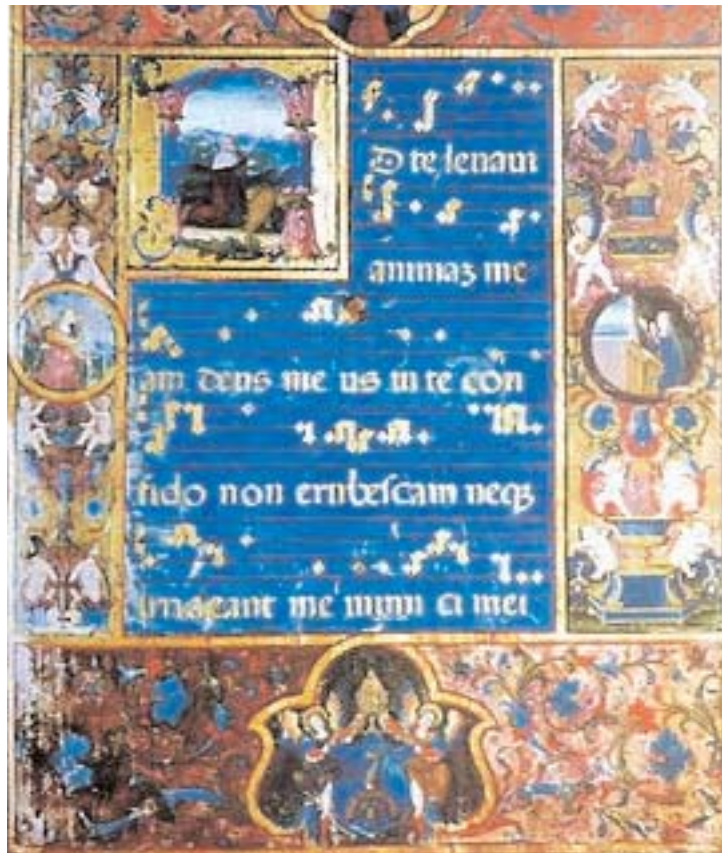 D te levaui
animaz me
am deus me us in te con
fido non erubescam neqz
irrideant me inimi ci mei